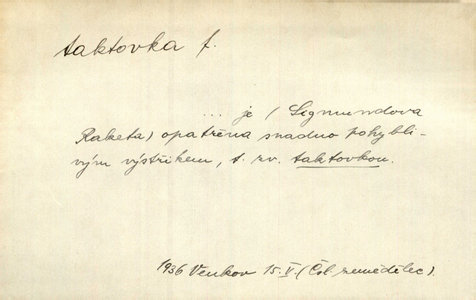 taktovka f.
... je (Sigmundova
Raketa) opatřena snadno pohybli-
vým výstřikem, t. zv. taktovkou.
1936 Venkov 15.V. (Čsl. zemědělec)